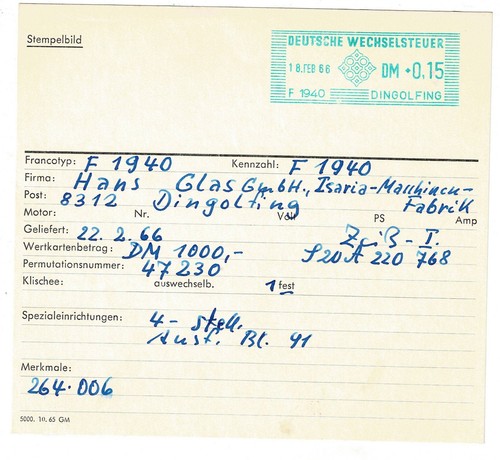 Stempelbild
DEUTSCHE WECHSELSTEUER
18.FEB 66 DM •0,15
F 1940 DINGOLFING
Francotyp: F 1940 Kennzahl: F 1940
Firma: Hans Glas GmbH., Isaria-Maschinen-
Post: 8312 Dingolfing Fabrik
Motor: Nr. Volt PS Amp
Geliefert: 22. 2. 66 Zeiß - I.
Wertkartenbetrag: DM 1000,- S20A 220 768
Permutationsnummer: 47230
Klischee: auswechselb. 1 fest
Spezialeinrichtungen: 4 - stell.
Aust. Bl. 41
Merkmale:
264.006
5000. 10. 65 GM